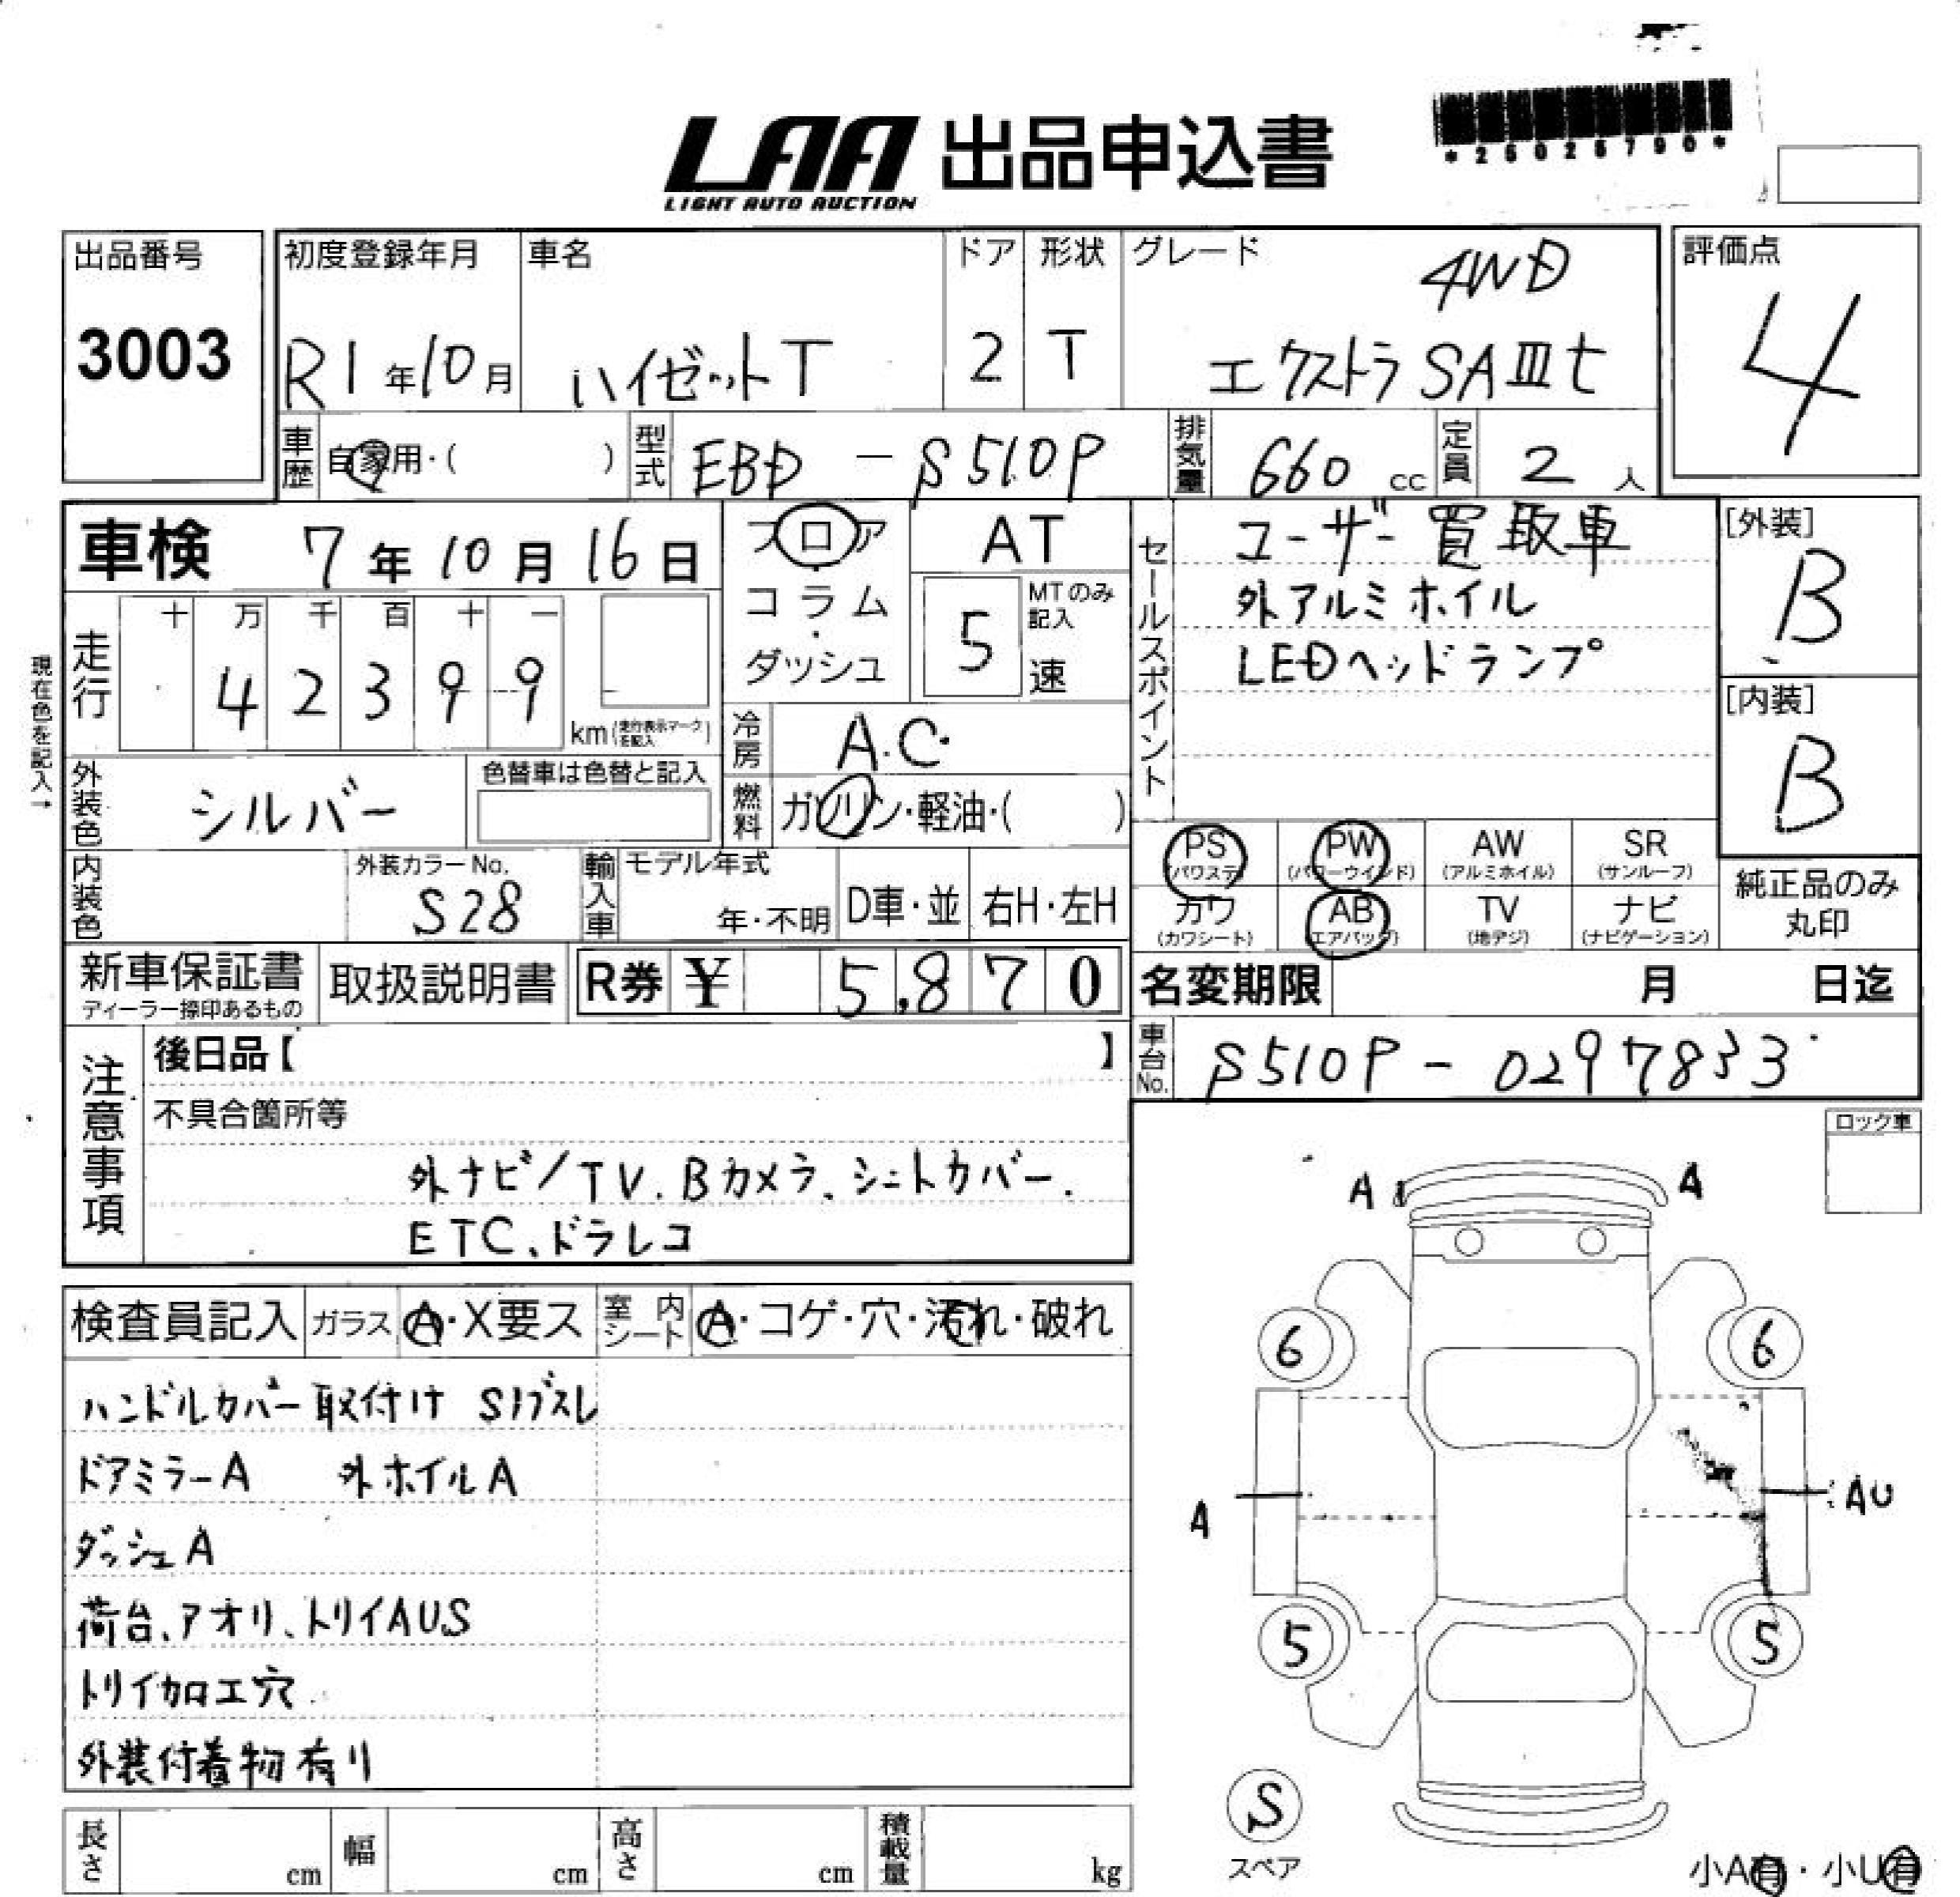 *25025790*
LAA 出品申込書
LIGHT AUTO AUCTION
出品番号 3003
初度登録年月 R1年10月
車名 ハイゼットT
ドア 2
形状 T
グレード 4WD
エクストラ SAⅢt
評価点 4
車歴 自家用・( )
型式 EBD-S510P
排気量 660 cc
定員 2 人
車検 7年10月16日
現在色を記入→
走行 十 万 千 百 十 一
4 2 3 9 9
km(走行表示マークを記入)
フロア
・
コラム
・
ダッシュ
AT
5 MTのみ記入
速
冷房 A.C.
燃料 ガソリン・軽油・( )
外装色 シルバー
色替車は色替と記入
内装色
外装カラーNo. S28
輸入車 モデル年式
年・不明 D車・並 右H・左H
セールスポイント
ユーザー買取車
外アルミホイル
LEDヘッドランプ
[外装] B
[内装] B
PS (パワステ) PW (パワーウインド) AW (アルミホイル) SR (サンルーフ)
カワ (カワシート) AB (エアバッグ) TV (地デジ) ナビ (ナビゲーション)
純正品のみ
丸印
新車保証書 取扱説明書
ディーラー捺印あるもの
R券 ¥ 5,870
名変期限 月 日迄
車台No. S510P-0297833
注意事項
後日品【 】
不具合箇所等
外ナビ/TV.Bカメラ、シートカバー.
ETC、ドラレコ
ロック車
検査員記入 ガラス A・X要ス 室内シート A・コゲ・穴・汚れ・破れ
ハンドルカバー取付け Sリブスレ
ドアミラーA 外ホイルA
ダッシュA
荷台、アオリ、トリイAUS
トリイ加工穴
外装付着物有り
A A
6 6
A AU
5 5
S
スペア
小A有・小U有
長さ cm 幅 cm 高さ cm 積載量 kg